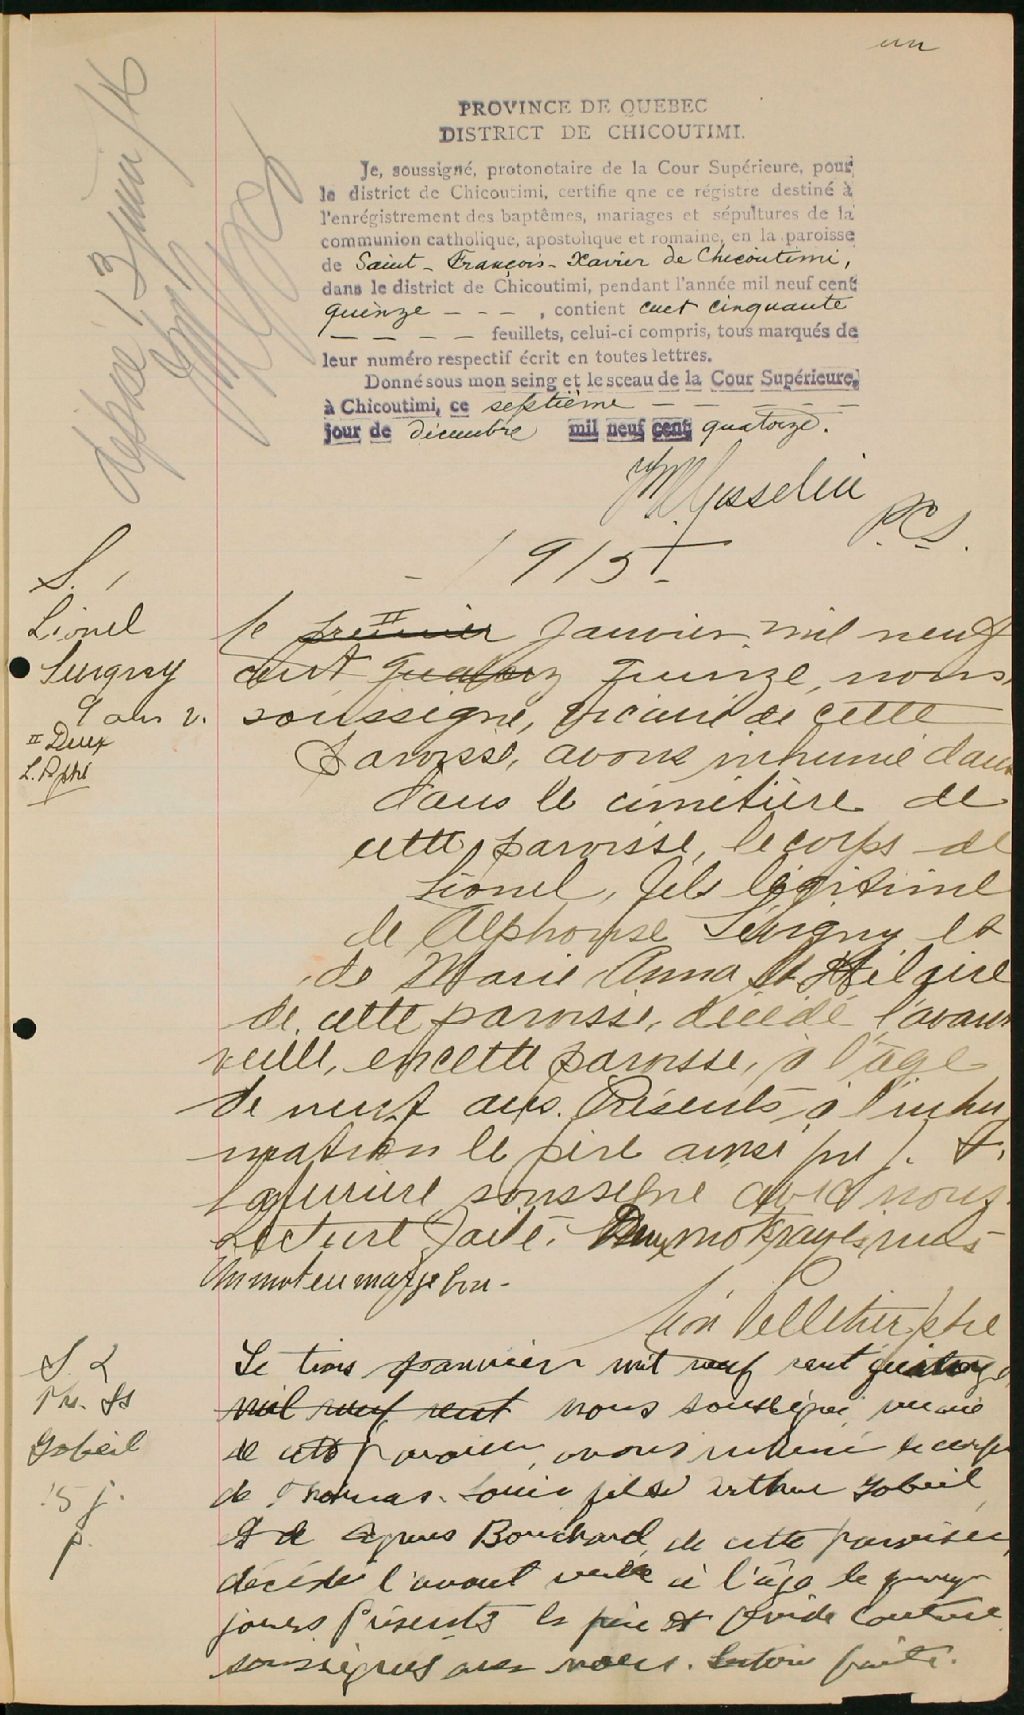 un
PROVINCE DE QUEBEC
DISTRICT DE CHICOUTIMI.
Je, soussigné, protonotaire de la Cour Supérieure, pour
le district de Chicoutimi, certifie qne ce régistre destiné à
l'enrégistrement des baptêmes, mariages et sépultures de la
communion catholique, apostolique et romaine, en la paroisse
de Saint-François-Xavier de Chicoutimi,
dans le district de Chicoutimi, pendant l'année mil neuf cent
quinze - - - , contient cent cinquante
- - - - feuillets, celui-ci compris, tous marqués de
leur numéro respectif écrit en toutes lettres.
Donné sous mon seing et le sceau de la Cour Supérieure,
à Chicoutimi, ce septième - - - -
jour de décembre mil neuf cent quatorze.
Gosselin
P.C.S.
- 1915 -
S. 1
Lionel
Sevigny
9 ans
II Deux
L. P. ptre
le premier II Janvier mil neuf
cent quatorz quinze, nous
soussigné, vicaire de cette
paroisse, avons inhumé dans
dans le cimetière de
cette paroisse, le corps de
Lionel, fils légitime
de Alphonse Sévigny et
de Marie Anna St Hilaire
de cette paroisse, décédé l'avant
veille, en cette paroisse, à l'âge
de neuf ans. Présents à l'inhu
mation le père ainsi que J. 
soussigné avec nous.
Lecture faite. Deux mots rayés nuls
Un mot en marge bon.
Léon Pelletier ptre
S. 2
Ths. Ls
Gobeil
15 j.
p.
Le trois janvier mil neuf cent quinze
mil neuf cent nous soussigné vicaire
de cette paroisse, avons inhumé le corps
de Thomas-Louis fils de Arthur Gobeil
et de Agnès Bouchard de cette paroisse
décédé l'avant veille à l'âge de quinze
jours Présents le père et Ovide Couture
soussignés avec nous. Lecture faite.
déposé 13 Janv /16